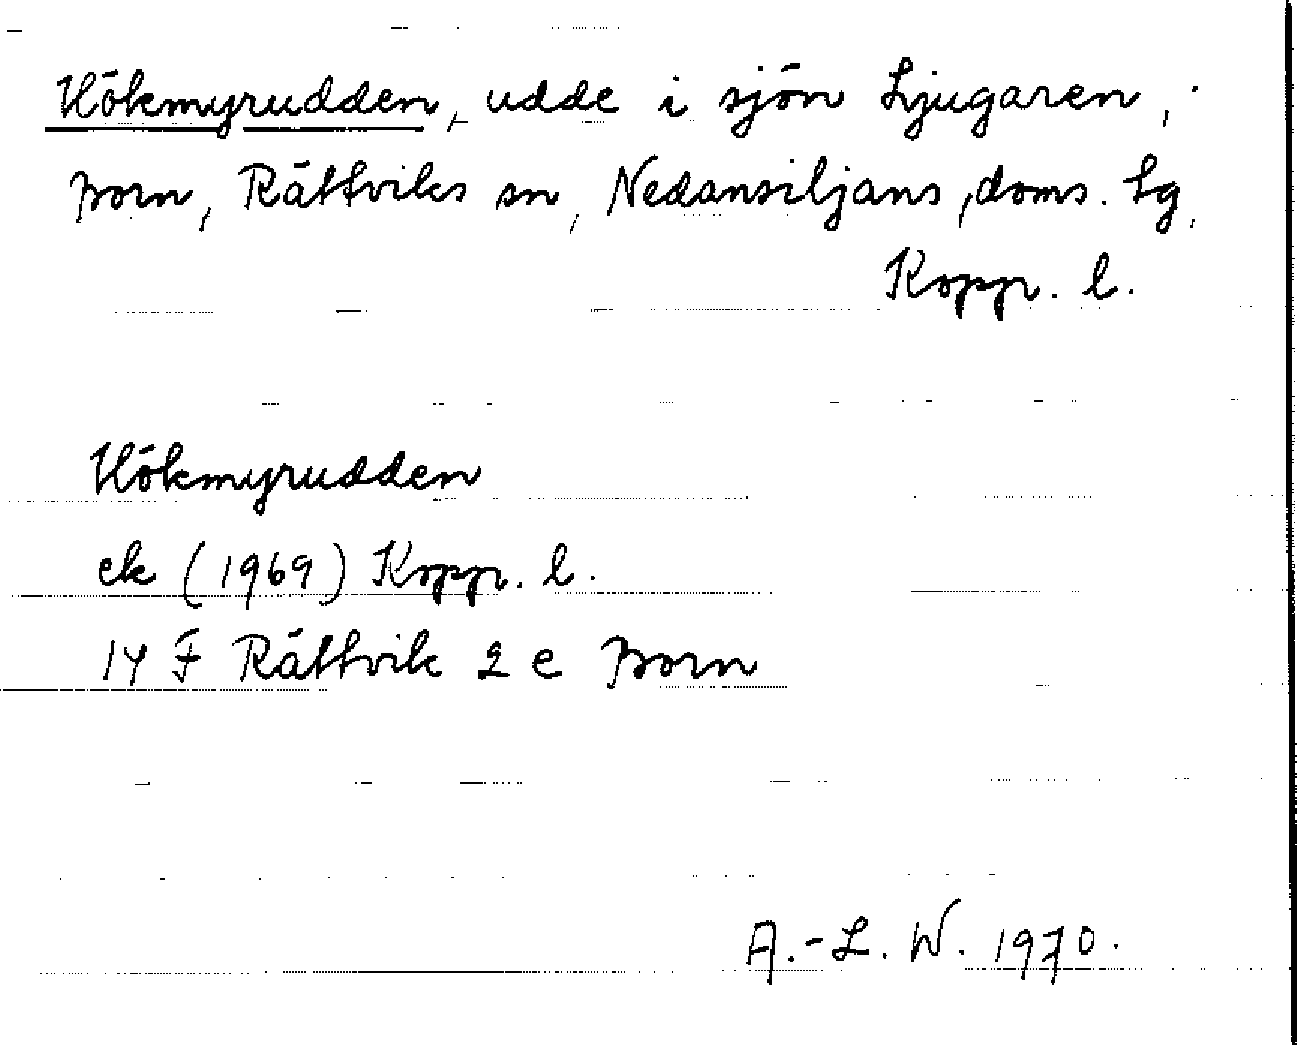 Hökmyrudden, udde i sjön Ljugaren,
Born, Rättviks sn, Nedansiljans, doms. tg,
Kopp. l.
Hökmyrudden
ek (1969) Kopp. l.
14 F Rättvik 2 e Born
A.-L. W. 1970.